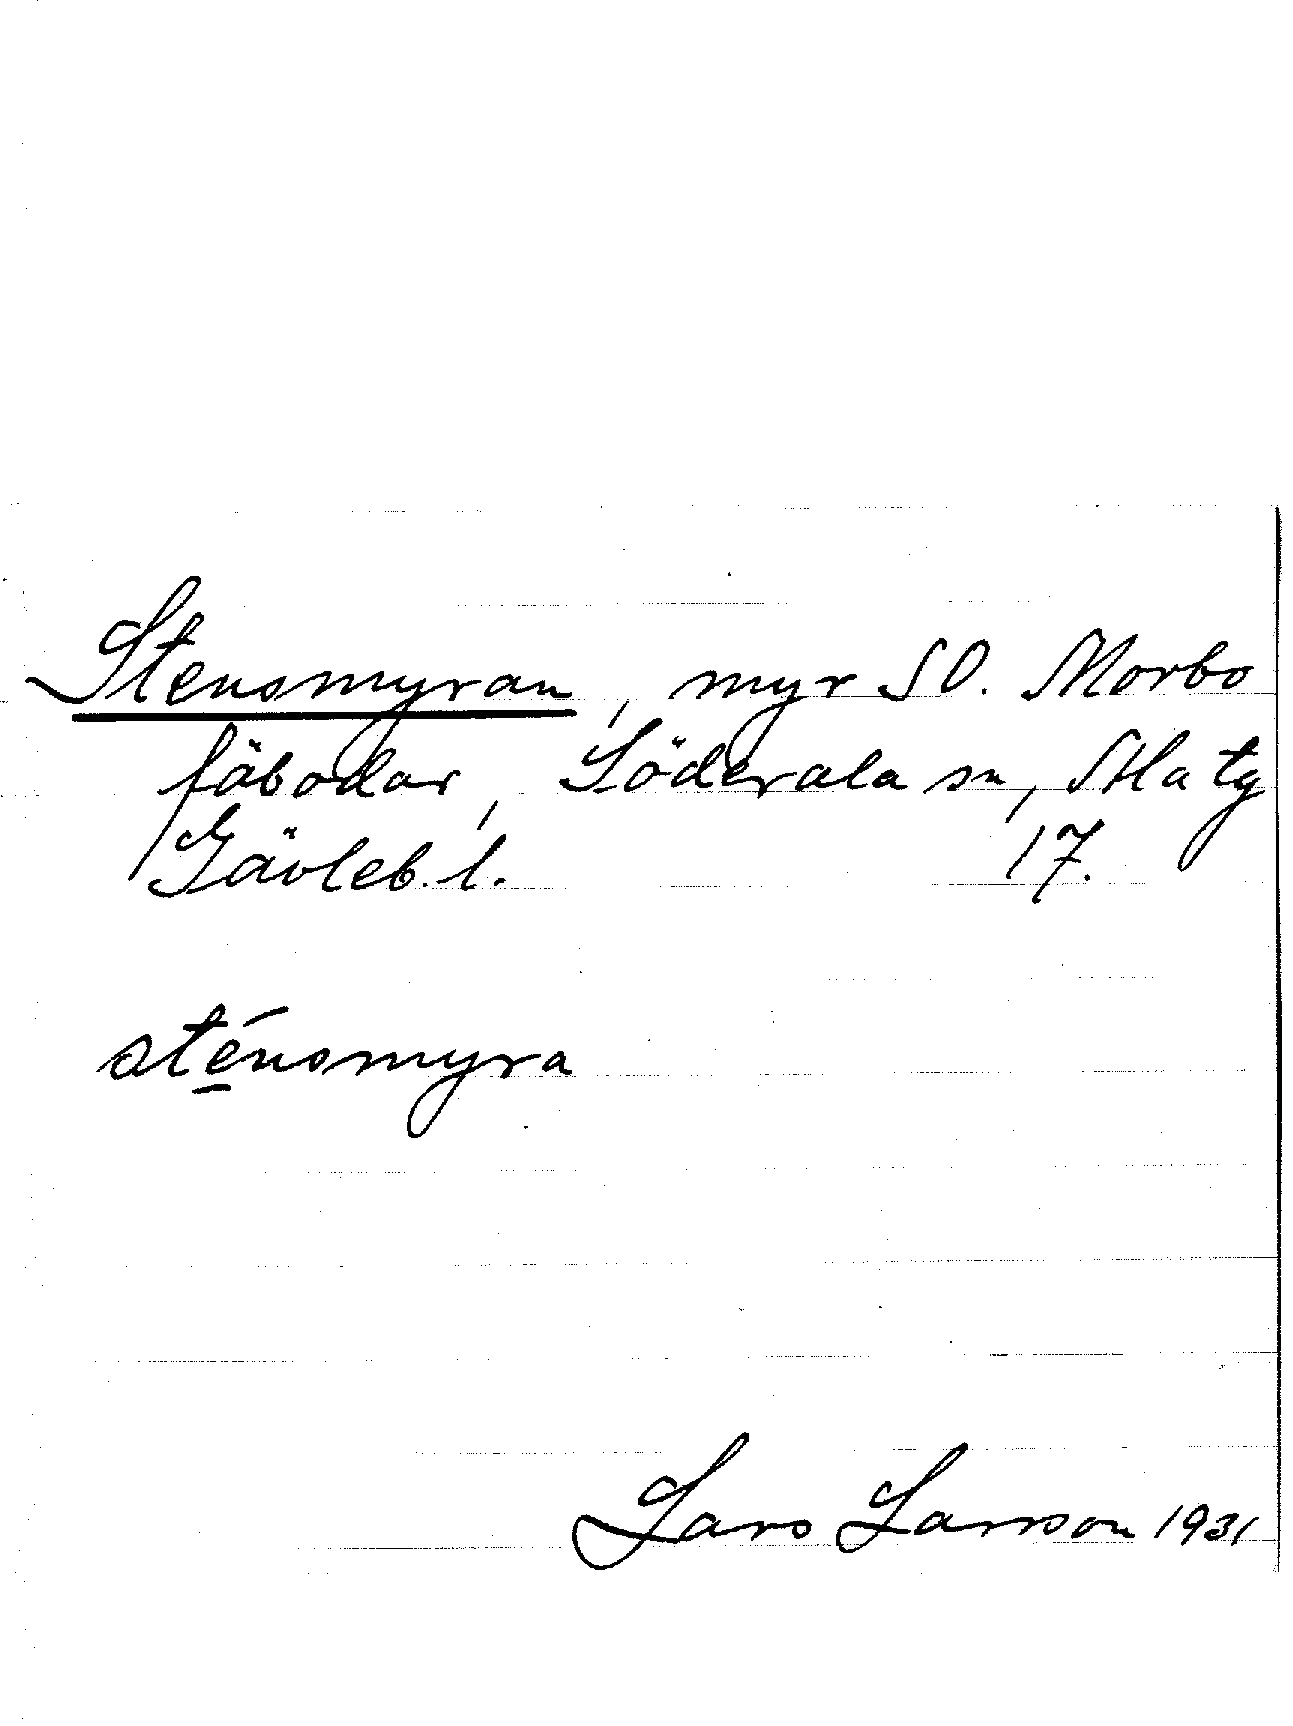 Stensmyran, myr SO. Morbo
fäbodar, Söderala sn, Ala tg
Gävleb. l. 17.
sténsmyra
Lars Larsson 1931